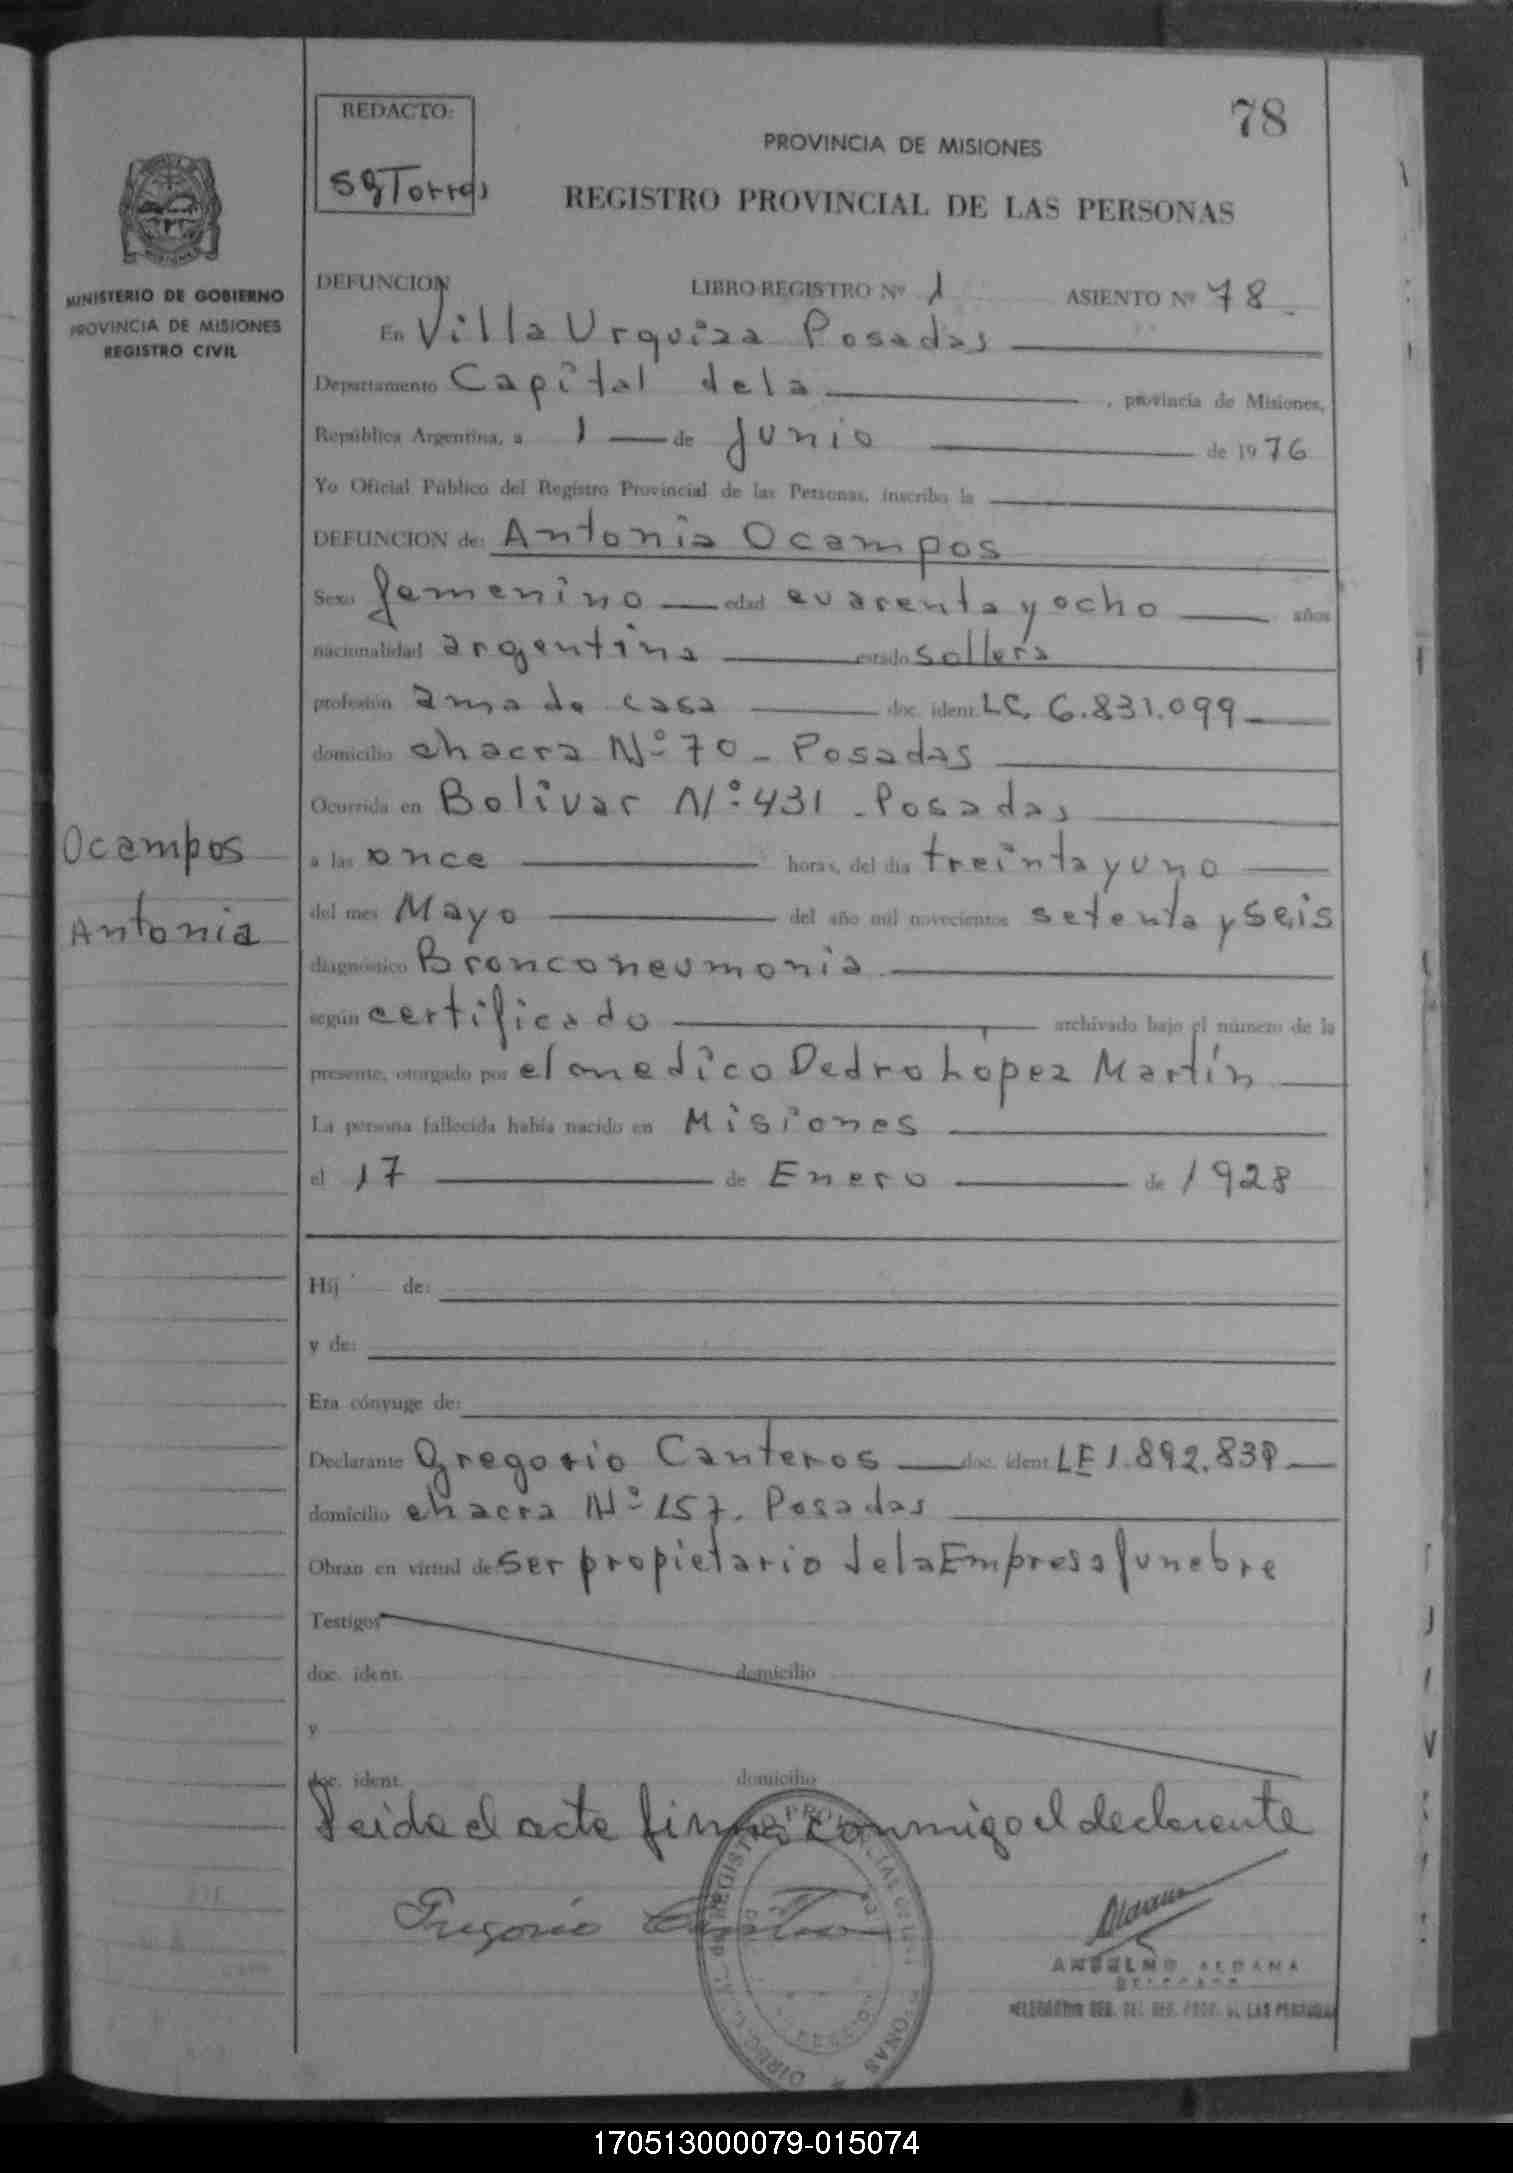 78
REDACTO:
SGTorres
PROVINCIA DE MISIONES
REGISTRO PROVINCIAL DE LAS PERSONAS
MINISTERIO DE GOBIERNO
PROVINCIA DE MISIONES
REGISTRO CIVIL
DEFUNCION LIBRO-REGISTRO Nº 1 ASIENTO Nº 78
En Villa Urquiza Posadas
Departamento Capital dela , provincia de Misiones,
República Argentina, a 1 de Junio de 1976
Yo Oficial Público del Registro Provincial de las Personas, inscribo la
DEFUNCION de: Antonia Ocampos
Sexo femenino edad cuarenta y ocho años
nacionalidad argentina estado soltera
profesión ama de casa doc. ident. LC. 6.831.099
domicilio chacra Nº 70 - Posadas
Ocurrida en Bolivar Nº 431 - Posadas
Ocampos
Antonia
a las once horas, del día treinta y uno
del mes Mayo del año mil novecientos setenta y seis
diagnóstico Bronconeumonia
según certificado archivado bajo el número de la
presente, otorgado por el medico Pedro López Martín
La persona fallecida había nacido en Misiones
el 17 de Enero de 1928
Hij de:
y de:
Era cónyuge de:
Declarante Gregorio Canteros doc. ident. LE 1.892.839
domicilio chacra Nº 157. Posadas
Obran en virtud de ser propietario dela Empresa funebre
Testigos
doc. ident. domicilio
y
doc. ident. domicilio
Leida el acta firma conmigo el declarante
Gregorio Canteros
ANSELMO ALDANA
170513000079-015074